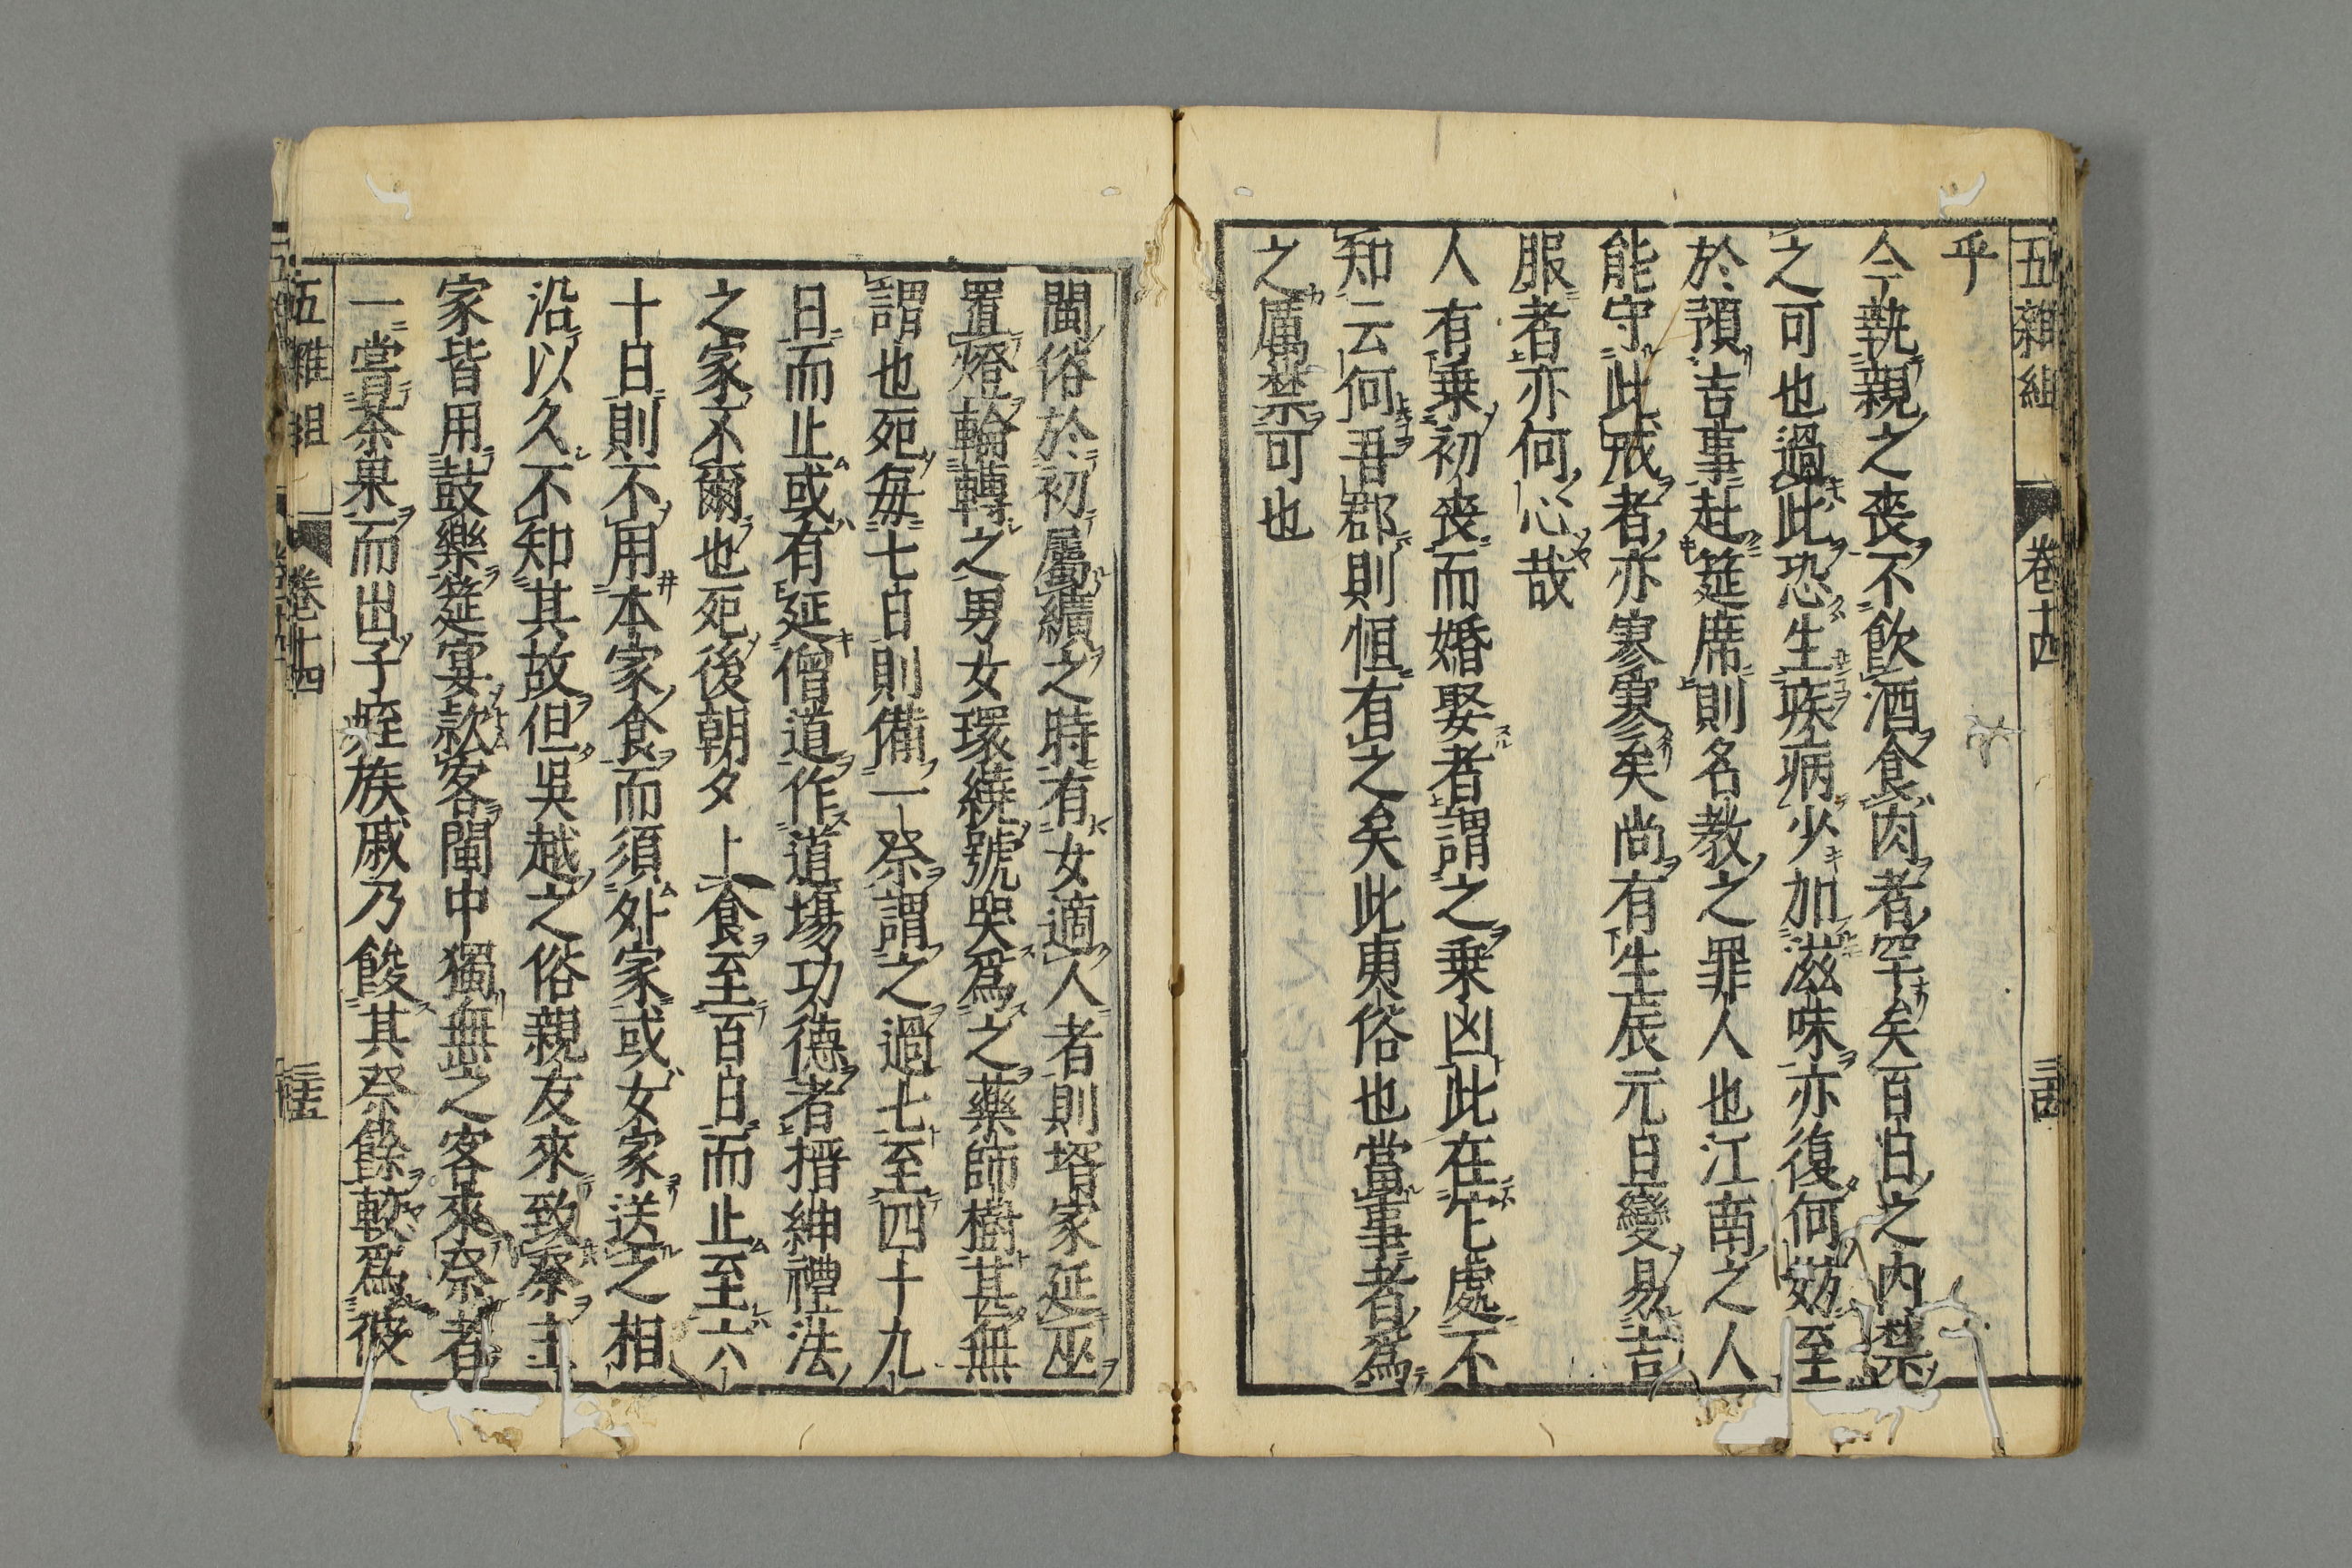 五雜組 卷十四 三十四
乎
今執親之喪不飲酒食肉者罕矣百日之內禁
之可也過此恐生疾病少加滋味亦復何妨至
於預吉事赴筵席則名教之罪人也江南之人
能守此戒者亦寥寥矣尚有生辰元旦變易吉
服者亦何心哉
人有乘初喪而婚娶者謂之乘凶此在它處不
知云何吾郡則恒有之矣此夷俗也當事者爲
之厲禁可也
閩俗於初屬纊之時有女適人者則壻家延巫
置燈輪轉之男女環繞號哭爲之藥師樹甚無
謂也死每七日則備一祭謂之過七至四十九
日而止或有延僧道作道塲功德者搢紳禮法
之家不爾也死後朝夕上食至百日而止至六
十日則不用本家食而須外家或女家送之相
沿以久不知其故但吳越之俗親友來致祭主
家皆用鼓樂筵宴款客閩中獨無之客來祭者
一嘗茶果而出子姪族戚乃餕其祭餘較爲彼
五雜組 卷十四 三十五